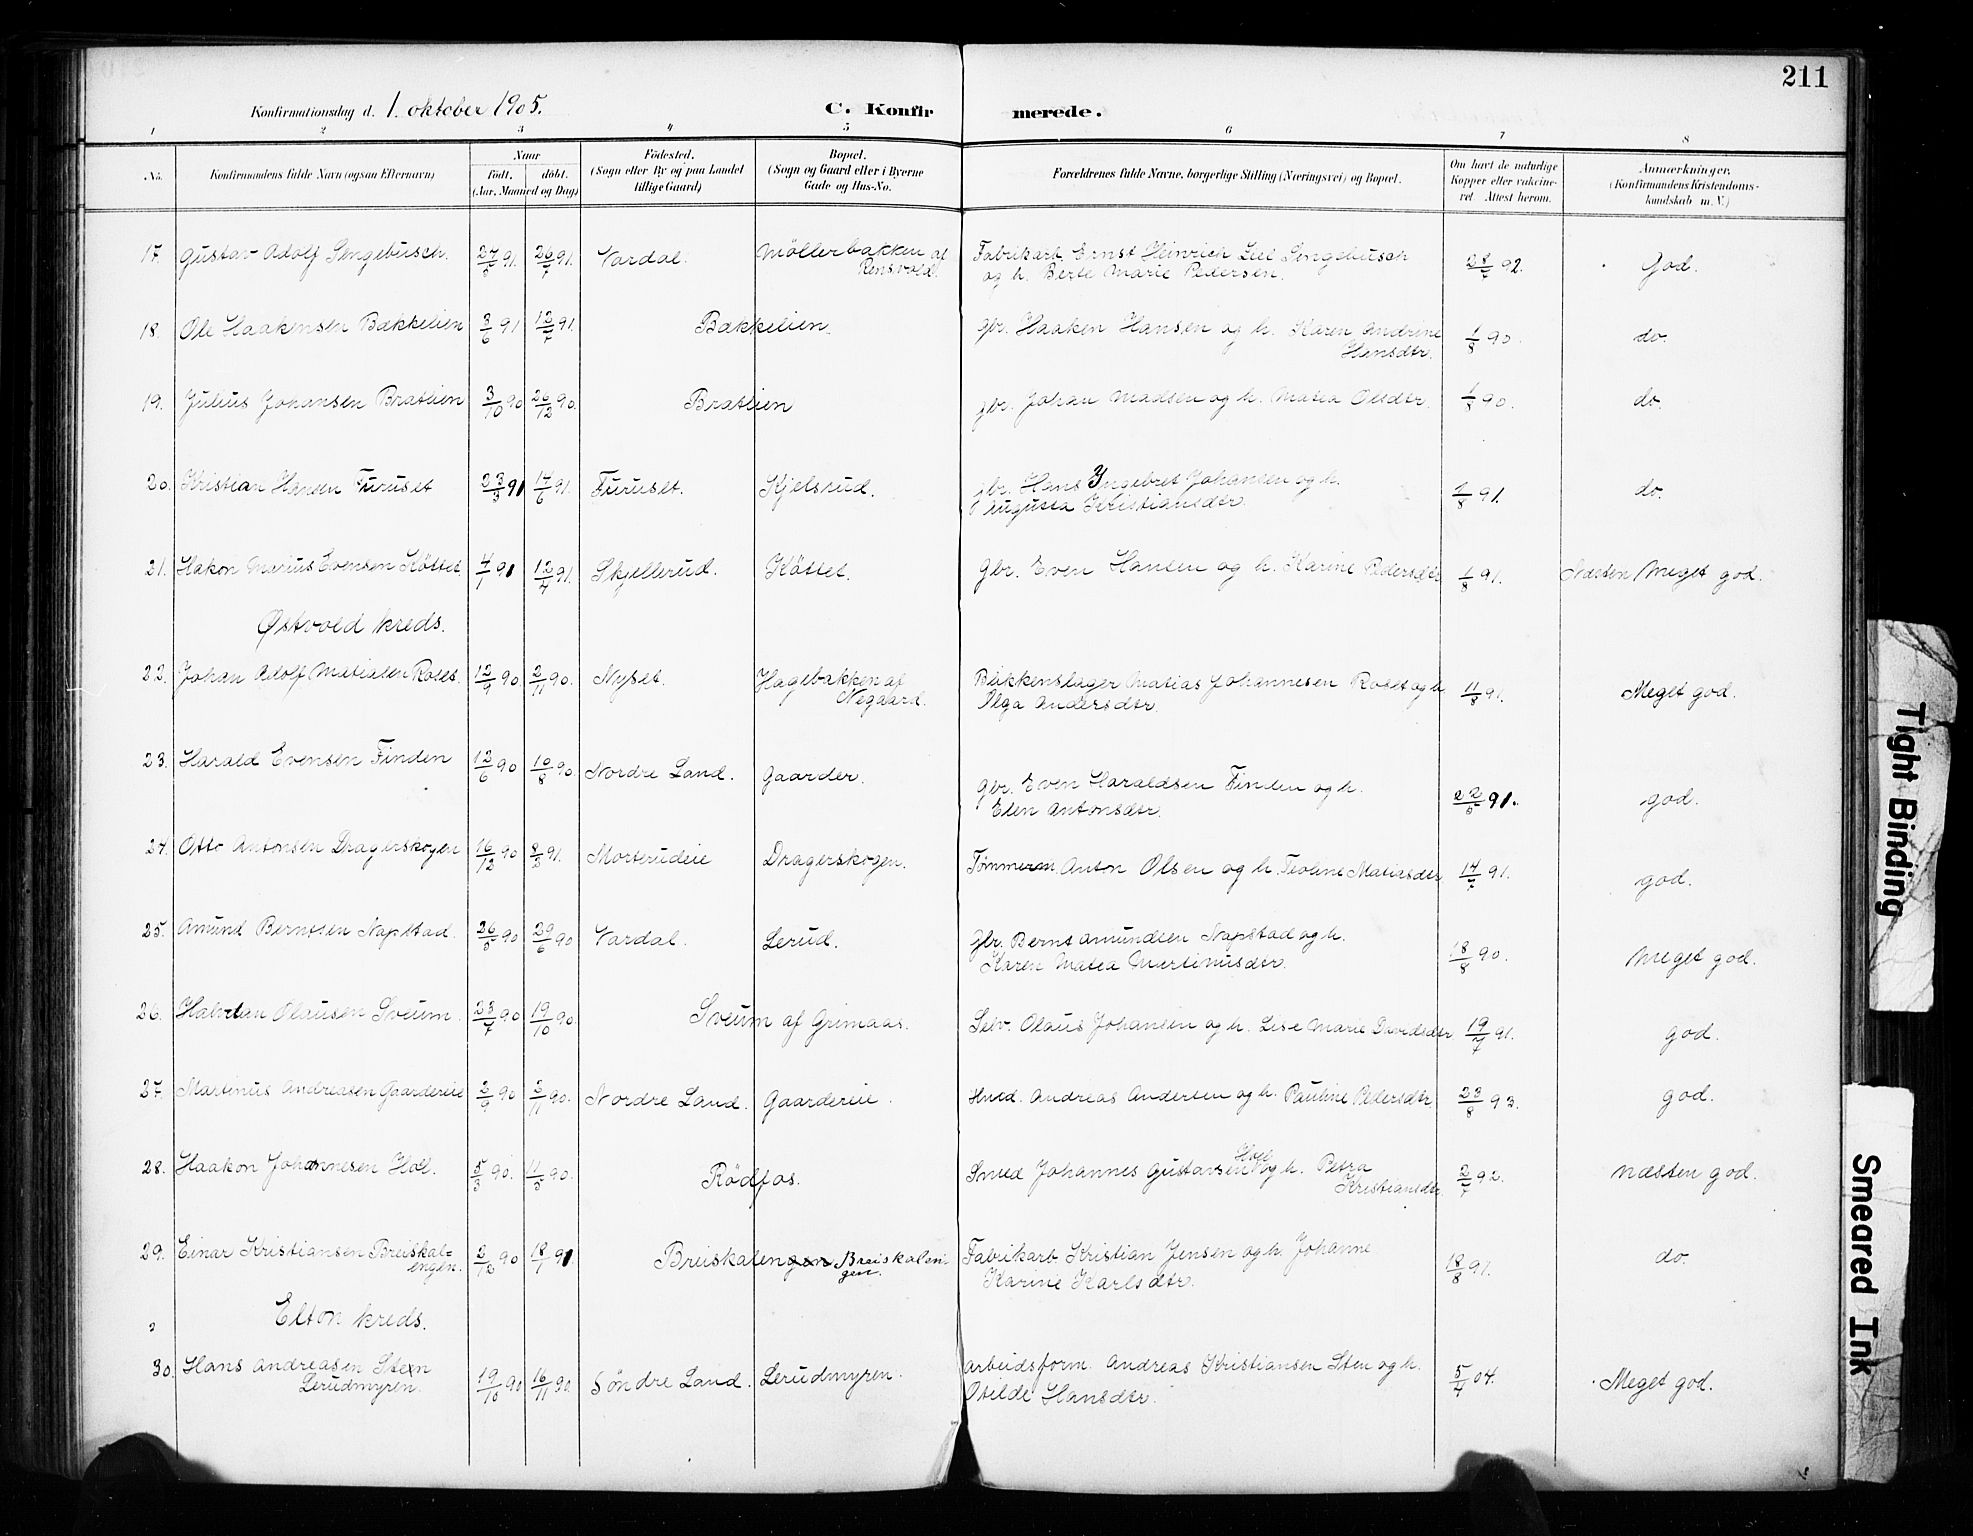 211
Konfirmationsdag d. 1. oktober 1905.
C. Konfirmerede.
1 2 3 4 5 6 7 8
No. Konfirmandens fulde Navn (ogsaa Efternavn) Naar Födt. döbt. (Aar, Maaned og Dag) Födested. (Sogn eller By og paa Landet tillige Gaard) Bopæl. (Sogn og Gaard eller i Byerne Gade og Hus-No. Forældrenes fulde Navne, borgerlige Stilling (Næringsvei) og Bopæl. Om havt de naturlige Kopper eller vakcineret Attest herom. Anmærkninger. (Konfirmandens Kristendomskundskab m. V.)
17. Gustav Adolf Sengebusch. 27/5 91. 26/7 91. Vardal. Möllerbakken af Rensvold. Fabrikarb. Ernst Heinrich Sengebusch og h. Berte Marie Pedersen. 28/7 92. God.
18. Ole Haakensen Bækkelien 3/6 91 12/7 91. Bækkelien. gbr. Haaken Hansen og h. Karen Andrine Hansdtr. 1/8 90. do.
19. Julius Johansen Bratlien 3/10 90 26/12 90. Bratlien gbr. Johan Madsen og h. Matea Olsdtr. 1/8 90. do.
20. Kristian Hansen Furuset 23/3 91 14/6 91. Furuset. Kjelsrud. gbr. Hans Yngebret Johansen og h. Augusta Kristiansdtr. 1/8 91. do.
21. Hakon Marius Evensen Köttet. 4/1 91 12/4 91. Skjellerud. Köttet. Gbr. Even Hansen og h. Karine Pedersdtr 1/8 91. Næsten Meget god.
Østvold kreds.
22. Johan Adolf Matiasen Roset. 12/9 90. 2/11 90. Nyset. Hagebakken af Negaard. Bakkenslager Matias Johannesen Roset og h. Olga Andersdtr. 11/8 91. Meget god.
23. Harald Evensen Finden 12/6 90 10/8 90. Nordre Land. Gaarder. Gbr. Even Haraldsen Finden og h. Elen Antonsdtr. 22/5 91. god.
24. Otto Antonsen Dragerskogen 16/12 90 8/3 91. Morterudeie Dragerskogen. Tømmerm. Anton Olsen og h. Teoline Matiasdtr. 14/7 91. god.
25. Amund Berntsen Napstad. 26/5 90 29/6 90 Vardal. Lerud. Gbr. Bernt Amundsen Napstad og h. Karen Matea Martinusdtr. 18/8 90. Meget god.
26. Halvdan Olausen Sveum. 23/7 90 19/10 90. Sveum af Grimaas. Selv. Olaus Johansen og h. Lise Marie Davidsdtr 19/7 91. god.
27. Martinus Andreasen Gaardereie 2/9 90 2/11 90. Nordre Land. Gaardereie. Husd. Andreas Andersen og h. Pauline Pedersdtr 23/8 93. god.
28. Haakon Johannesen Holl. 5/3 90. 11/5 90. Rödfos. Smed Johannes Gustavsen Holl og h. Petra Kristiansdtr. 2/7 92. Næsten god.
29. Einar Kristiansen Breiskalengen. 2/12 90 18/1 91 Breiskalengen Breiskalengen. Fabrikarb. Kristian Jensen og h. Johanne Karine Karlsdtr. 18/8 91. do.
Elton kreds.
30. Hans Andreasen Sten Lerudmyren. 19/10 90 16/11 90. Söndre Land. Lerudmyren. Arbeidsform. Andreas Kristiansen Sten og h. Otilde Hansdtr. 5/4 04. Meget god.
Tight Binding
Smeared Ink